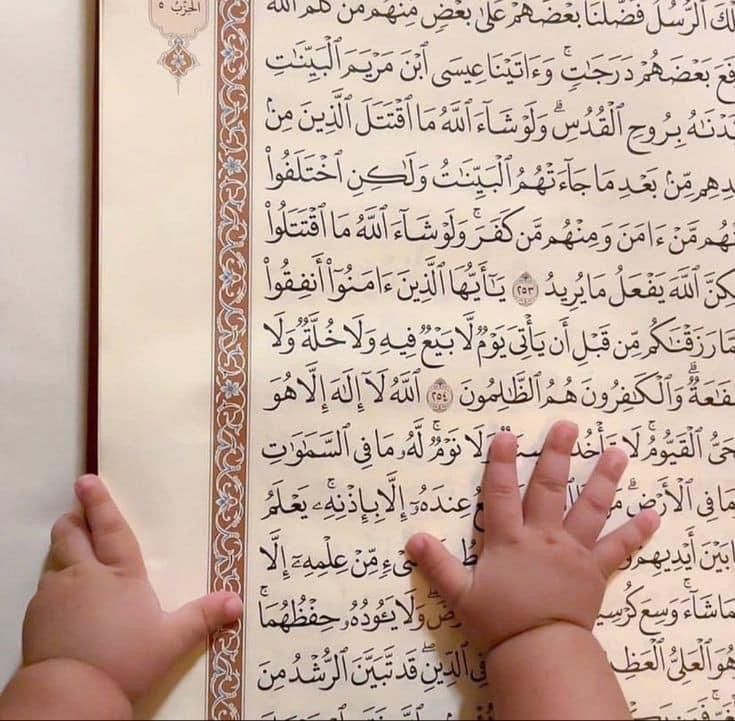 الحزب ٥
ٱلرُّسُلُ فَضَّلْنَا بَعْضَهُمْ عَلَىٰ بَعْضٍ مِّنْهُم مَّن كَلَّمَ ٱللَّهُ
بَعْضَهُمْ دَرَجَٰتٍ ۚ وَءَاتَيْنَا عِيسَى ٱبْنَ مَرْيَمَ ٱلْبَيِّنَٰتِ
بِرُوحِ ٱلْقُدُسِ ۗ وَلَوْ شَآءَ ٱللَّهُ مَا ٱقْتَتَلَ ٱلَّذِينَ مِنۢ
مِّنۢ بَعْدِ مَا جَآءَتْهُمُ ٱلْبَيِّنَٰتُ وَلَٰكِنِ ٱخْتَلَفُوا۟
مَّنْ ءَامَنَ وَمِنْهُم مَّن كَفَرَ ۚ وَلَوْ شَآءَ ٱللَّهُ مَا ٱقْتَتَلُوا۟
ٱللَّهَ يَفْعَلُ مَا يُرِيدُ ٢٥٣ يَٰٓأَيُّهَا ٱلَّذِينَ ءَامَنُوٓا۟ أَنفِقُوا۟
رَزَقْنَٰكُم مِّن قَبْلِ أَن يَأْتِىَ يَوْمٌ لَّا بَيْعٌ فِيهِ وَلَا خُلَّةٌ وَلَا
وَٱلْكَٰفِرُونَ هُمُ ٱلظَّٰلِمُونَ ٢٥٤ ٱللَّهُ لَآ إِلَٰهَ إِلَّا هُوَ
ٱلْقَيُّومُ ۚ لَا وَلَا نَوْمٌ ۚ لَّهُۥ مَا فِى ٱلسَّمَٰوَٰتِ
مَا فِى ٱلْأَرْضِ ۗ عِندَهُۥٓ إِلَّا بِإِذْنِهِۦ ۚ يَعْلَمُ
بَيْنَ أَيْدِيهِمْ مِّنْ عِلْمِهِۦٓ إِلَّا
شَآءَ ۚ وَسِعَ وَلَا يَـُٔودُهُۥ حِفْظُهُمَا ۚ
هُوَ ٱلْعَلِىُّ ٱلدِّينِ ۖ قَد تَّبَيَّنَ ٱلرُّشْدُ مِنَ